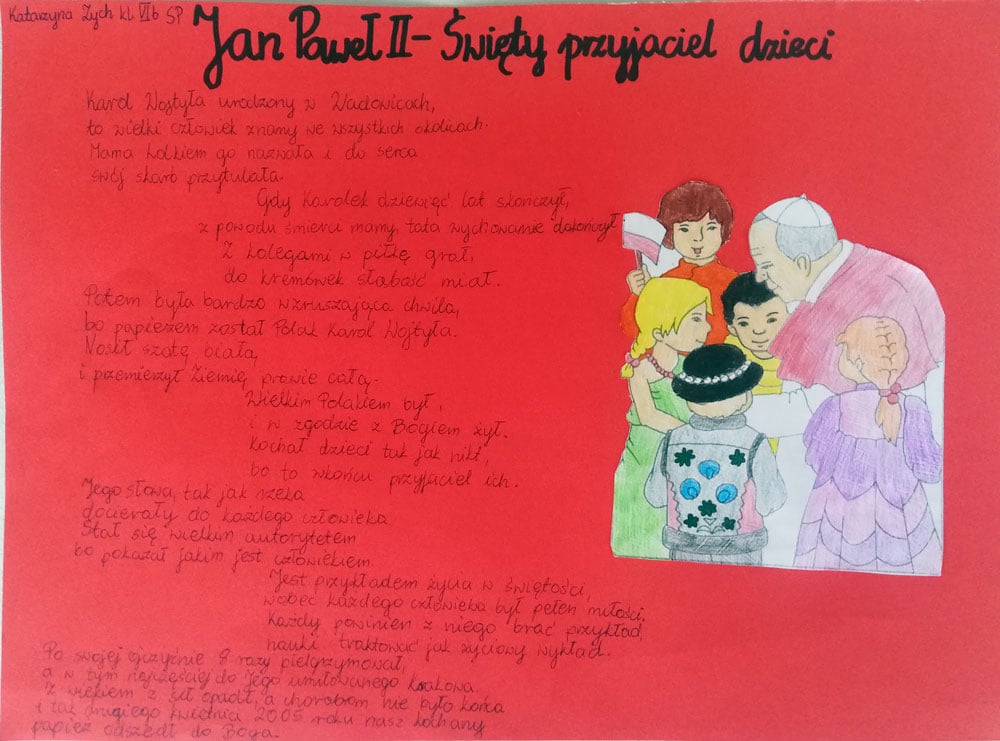 Katarzyna Zych kl. VIb SP
Jan Paweł II - Święty przyjaciel dzieci
Karol Wojtyła urodzony w Wadowicach,
to wielki człowiek znamy we wszystkich okolicach.
Mama Lolkiem go nazwała i do serca
swój skarb przytulała.
Gdy Karolek dziewięć lat skończył,
z powodu śmierci mamy, tata wychowanie dokończył.
Z kolegami w piłkę grał,
do kremówek słabość miał.
Potem była bardzo wzruszająca chwila,
bo papieżem został Polak Karol Wojtyła.
Nosił szatę białą,
i przemierzył Ziemię prawie całą.
Wielkim Polakiem był,
i w zgodzie z Bogiem żył.
Kochał dzieci tak jak nikt,
bo to wkońcu przyjaciel ich.
Jego słowa, tak jak rzeka
docierały do każdego człowieka
Stał się wielkim autorytetem
bo pokazał jakim jest człowiekiem.
Jest przykładem życia w świętości,
wobec każdego człowieka był pełen miłości.
Każdy powinien z niego brać przykład,
nauki traktować jak życiowy wykład.
Po swojej ojczyźnie 8 razy pielgrzymował,
a w tym najczęściej do Jego umiłowanego Krakowa.
Z wiekiem z sił opadł, a chorobom nie było końca
i tak drugiego kwietnia 2005 roku nasz kochany
papież odszedł do Boga.